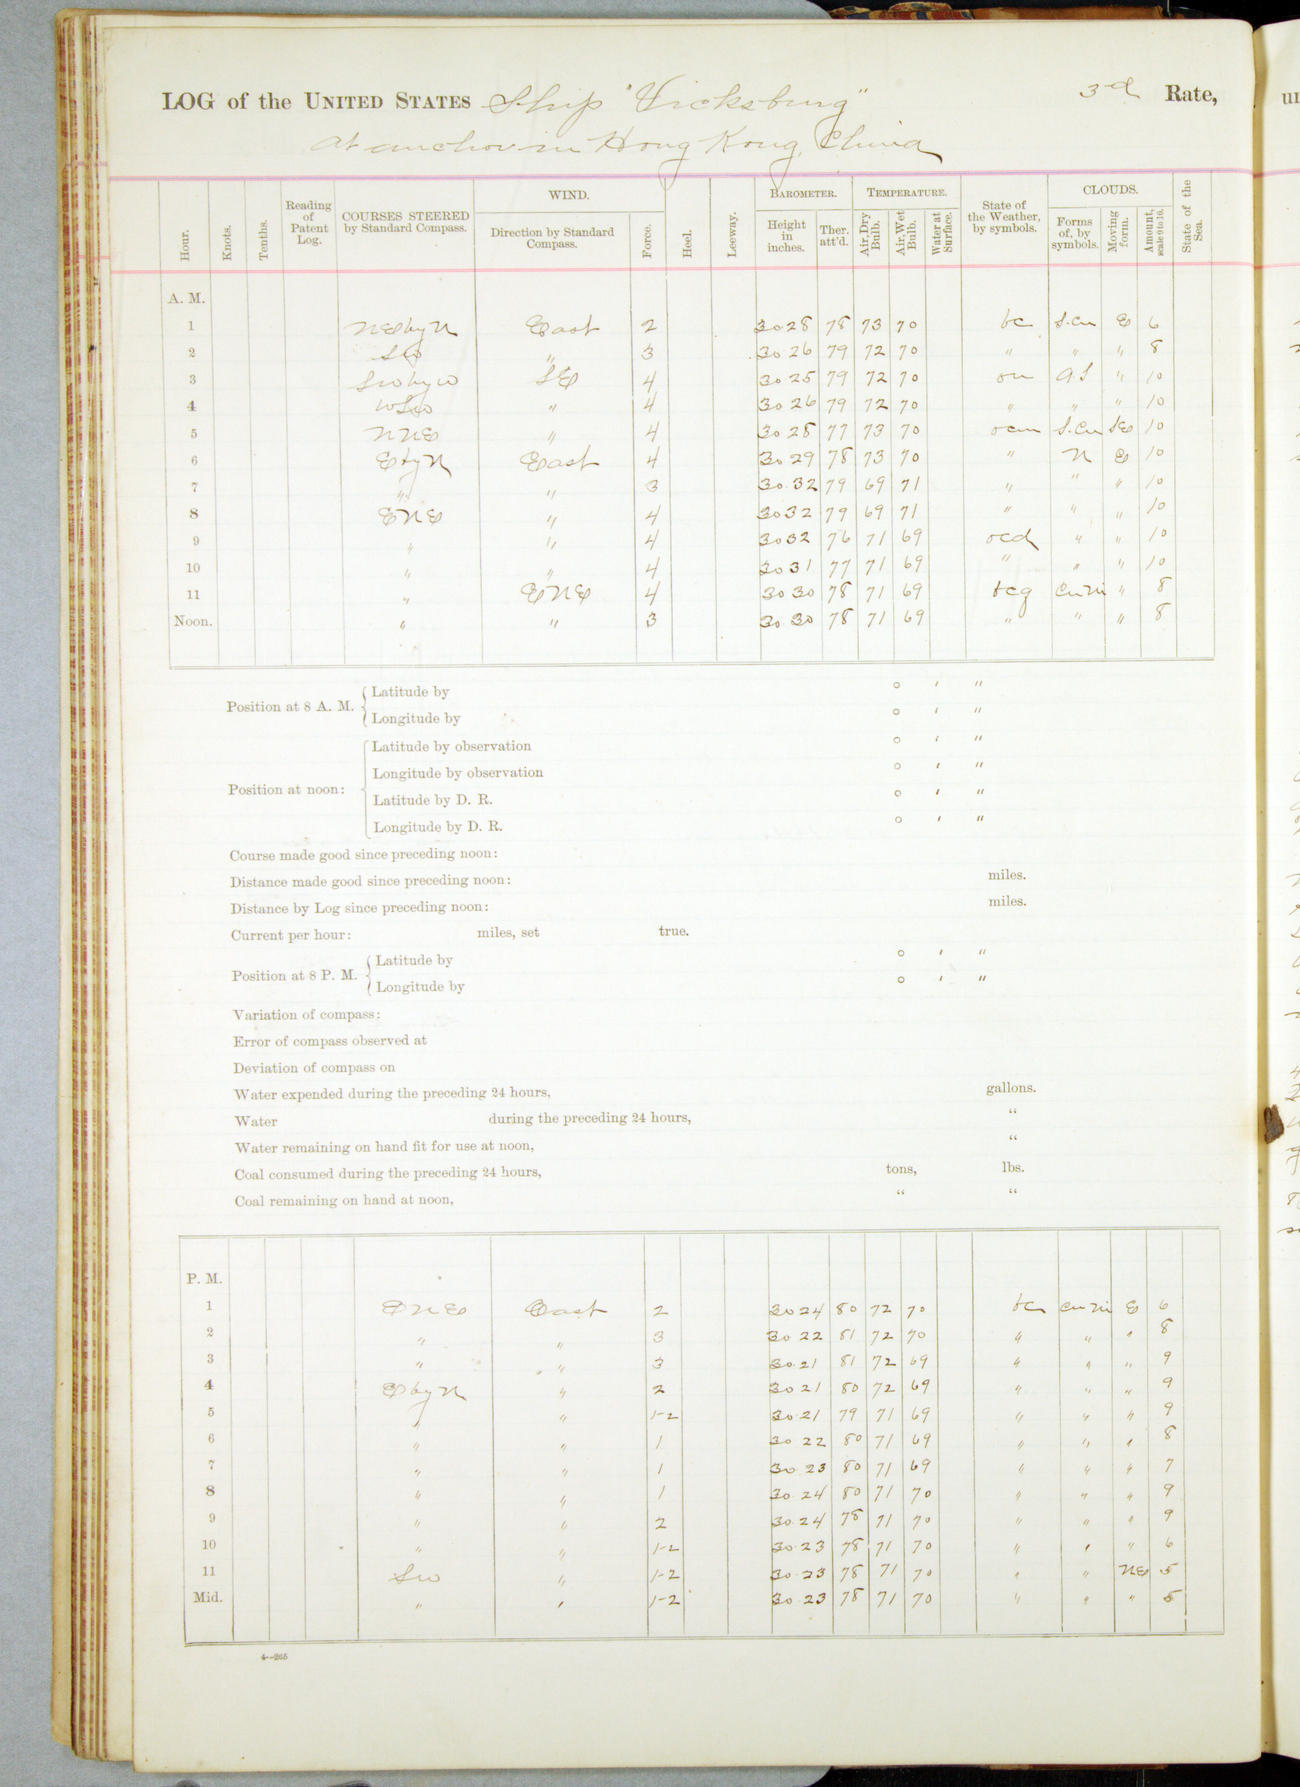 LOG of the UNITED STATES Ship "Vicksburg" 3rd Rate,
At anchor in Hong Kong, China
Hour. Knots. Tenths. Reading of Patent Log. COURSES STEERED by Standard Compass. WIND. Direction by Standard Compass. Force. Heel. Leeway. BAROMETER. Height in inches. Ther. att'd. TEMPERATURE. Air, Dry Bulb. Air, Wet Bulb. Water at Surface. State of the Weather, by symbols. CLOUDS. Forms of, by symbols. Moving form. Amount, scale 0 to 10. State of the Sea.
A. M.
1 NE by N East 2 30 28 78 73 70 bc S.Cu E 6
2 SW " 3 30 26 79 72 70 " " " 8
3 SW by W SE 4 30 25 79 72 70 om A.S " 10
4 WSW " 4 30 26 79 72 70 " " " 10
5 NNE " 4 30 28 77 73 70 ocm S.Cu SE 10
6 E by N East 4 30 29 78 73 70 " N E 10
7 " " 3 30.32 79 69 71 " " " 10
8 ENE " 4 30 32 79 69 71 " " " 10
9 " " 4 30 32 76 71 69 ocd " " 10
10 " " 4 30 31 77 71 69 " " " 10
11 " ENE 4 30 30 78 71 69 bcg Cu.Ni " 8
Noon. " " 3 30 30 78 71 69 " " " 8
Position at 8 A. M. Latitude by ° ′ ″
Longitude by ° ′ ″
Position at noon: Latitude by observation ° ′ ″
Longitude by observation ° ′ ″
Latitude by D. R. ° ′ ″
Longitude by D. R. ° ′ ″
Course made good since preceding noon:
Distance made good since preceding noon: miles.
Distance by Log since preceding noon: miles.
Current per hour: miles, set true.
Position at 8 P. M. Latitude by ° ′ ″
Longitude by ° ′ ″
Variation of compass:
Error of compass observed at
Deviation of compass on
Water expended during the preceding 24 hours, gallons.
Water during the preceding 24 hours, "
Water remaining on hand fit for use at noon, "
Coal consumed during the preceding 24 hours, tons, lbs.
Coal remaining on hand at noon, " "
P. M.
1 ENE East 2 30 24 80 72 70 bc Cu Ni E 6
2 " " 3 30 22 81 72 70 " " " 8
3 " " 3 30.21 81 72 69 " " " 9
4 E by N " 2 30 21 80 72 69 " " " 9
5 " " 1-2 30 21 79 71 69 " " " 9
6 " " 1 30 22 80 71 69 " " " 8
7 " " 1 30 23 80 71 69 " " " 7
8 " " 1 30.24 80 71 70 " " " 9
9 " " 2 30.24 78 71 70 " " " 9
10 " " 1-2 30.23 78 71 70 " " " 6
11 SW " 1-2 30.23 78 71 70 " " NE 5
Mid. " " 1-2 30.23 78 71 70 " " " 5
4--265